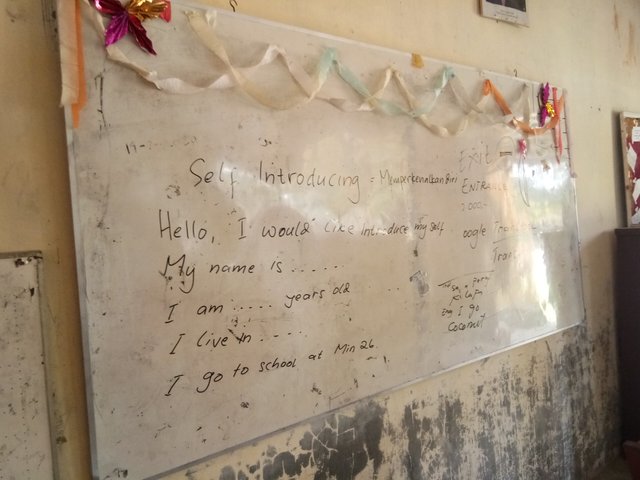 Self Introducing = Memperkenalkan Diri
Hello, I would like Introduce my self
My name is .....
I am ..... years old
I live in .....
I go to school at Min 26
Exit
ENTRANCE
oogle
Tran
I go
Coconut